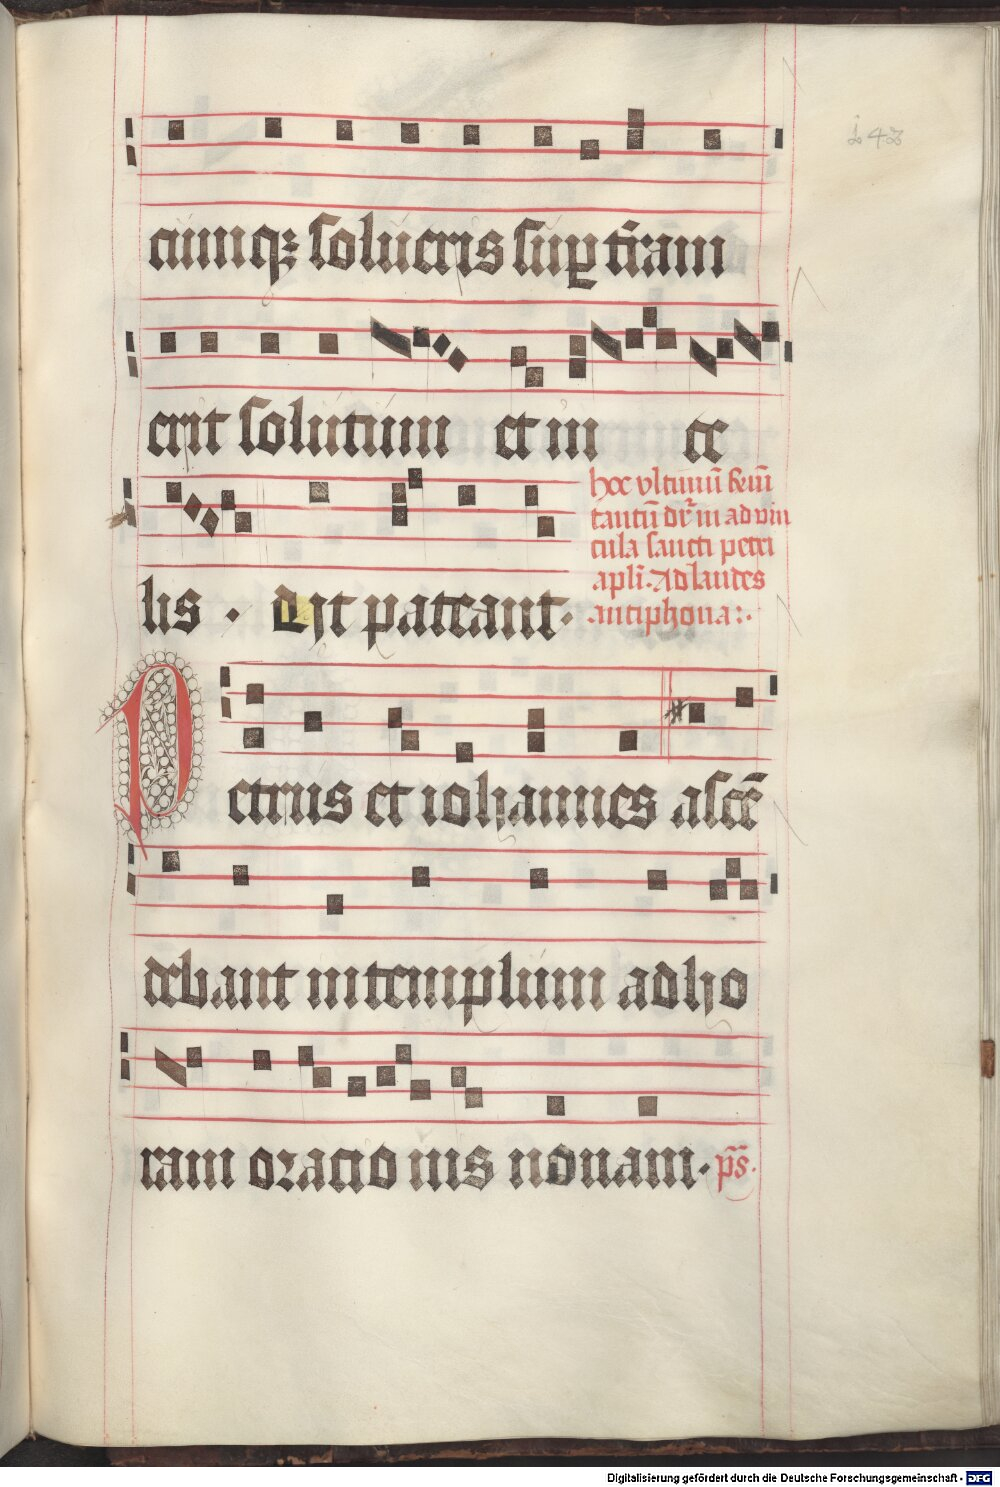 142
cumqꝫ solueris suꝑ t̄ram
erit solutum et in ce
lis . Qđ ut pateant.
hoc vltimū ℟em̄
tantū dr̄ in ad vin
cula sancti petri
apl̄i. Ad laudes
antiphona:.
Petrus et iohannes ascē
debant in templum ad ho
ram oracio nis nonam. p̄s.
Digitalisierung gefördert durch die Deutsche Forschungsgemeinschaft - DFG